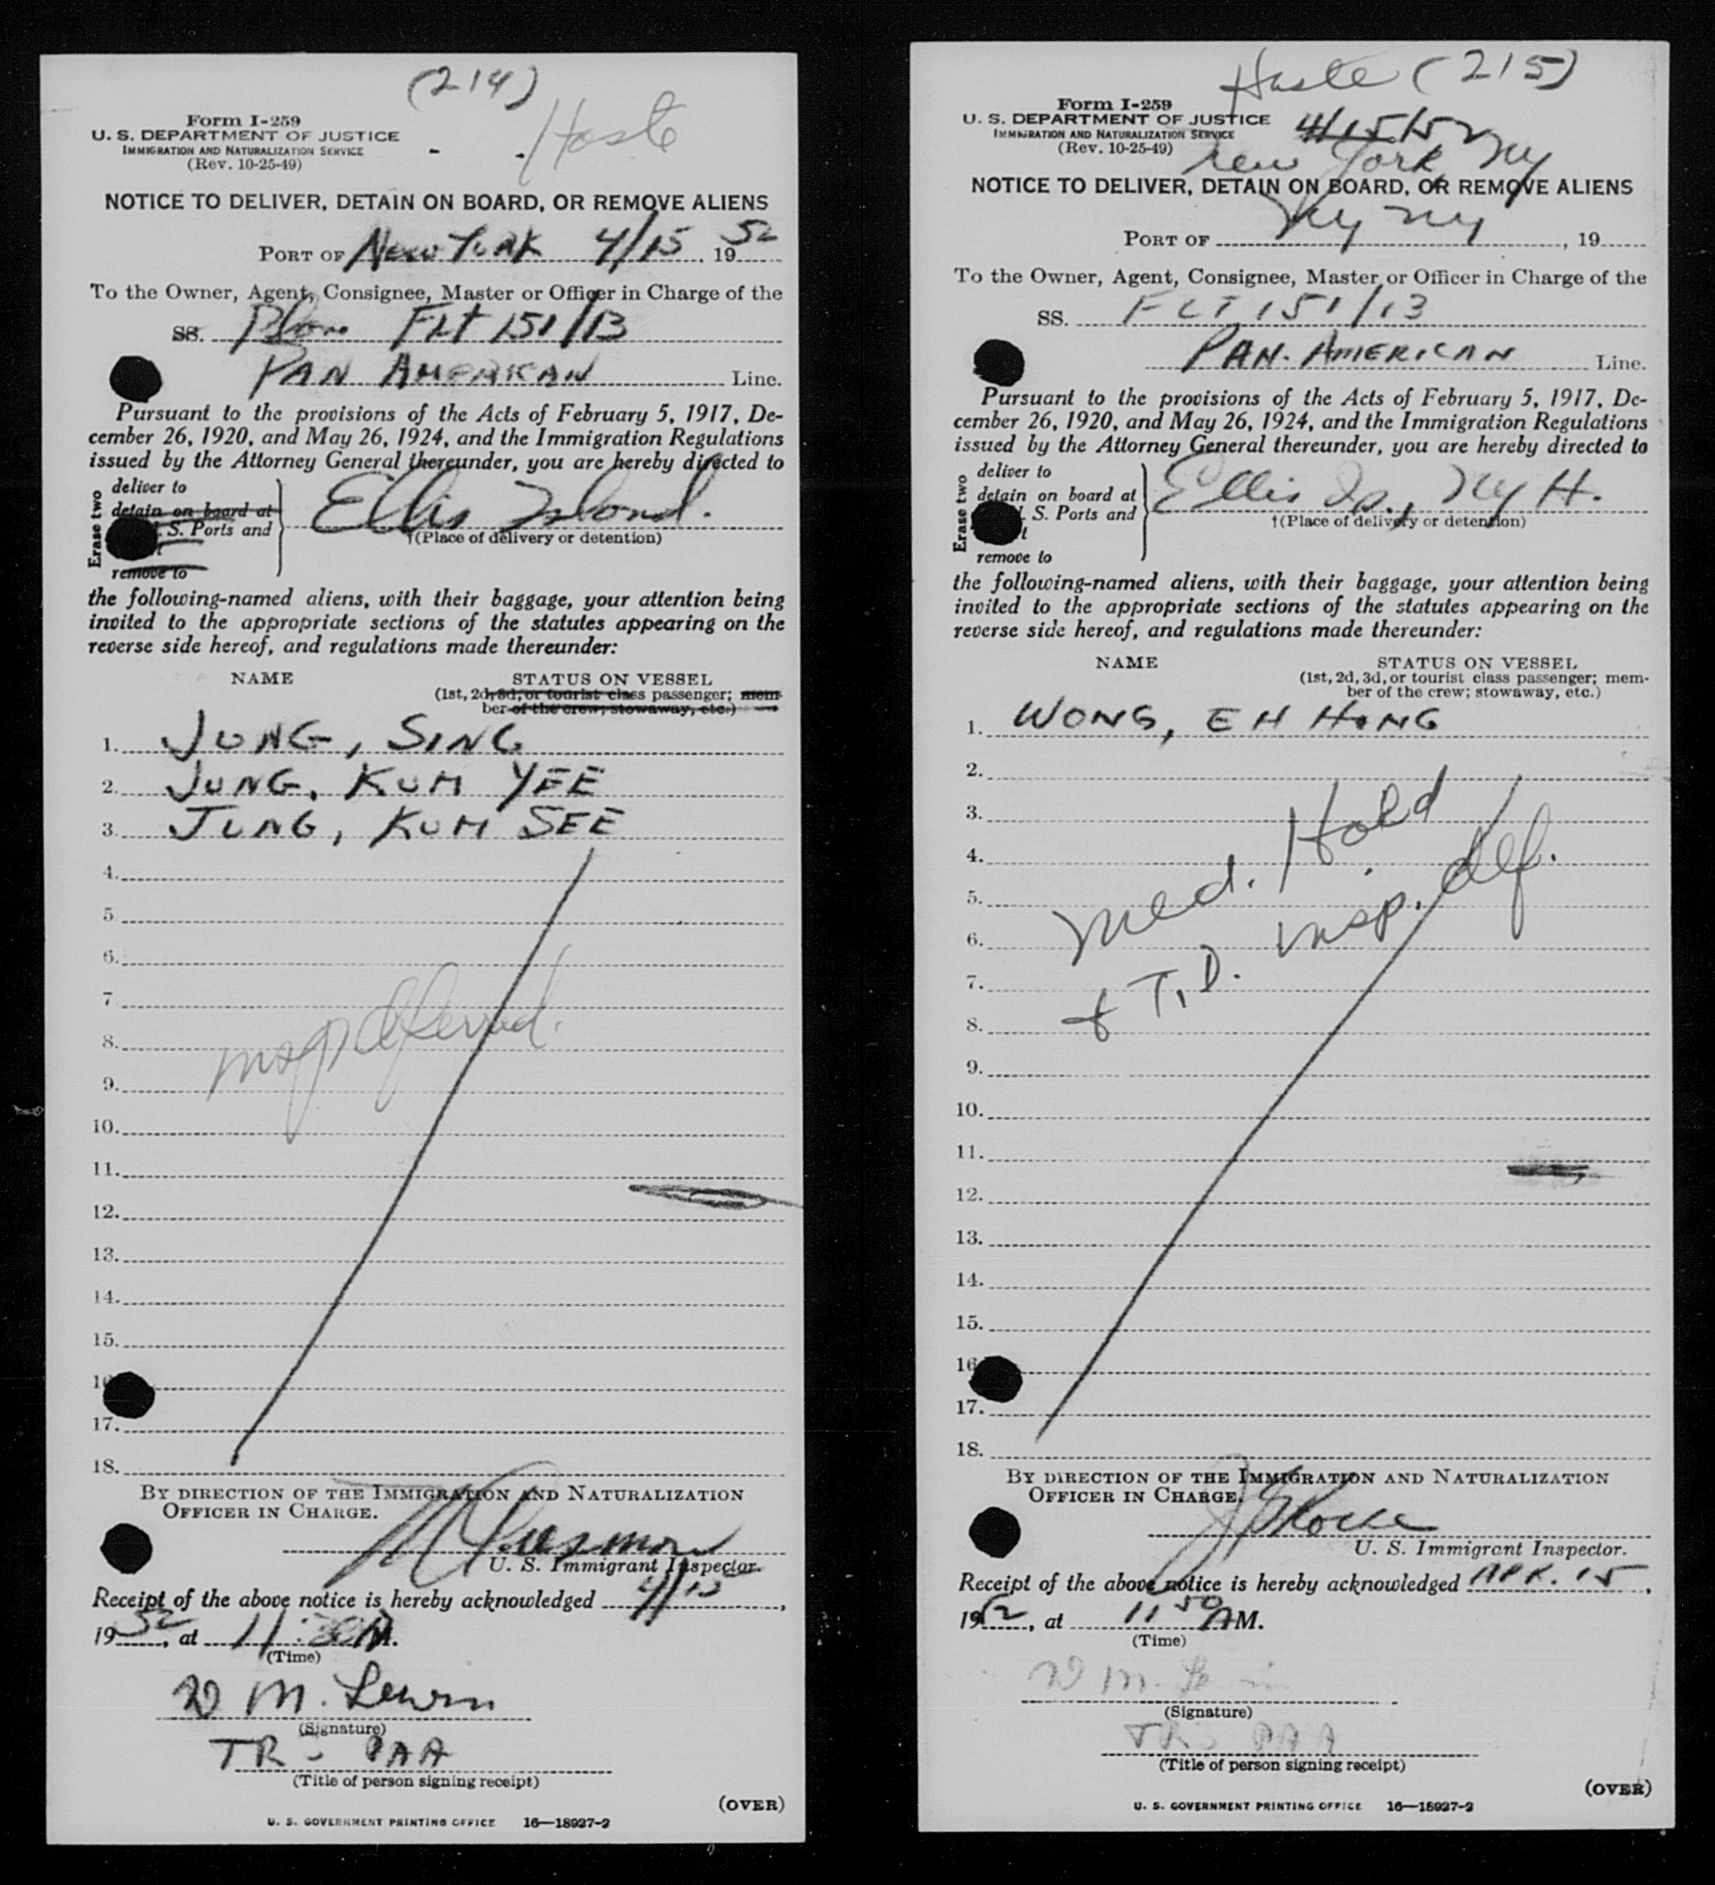 (214)
Haste
Form I-259
U. S. DEPARTMENT OF JUSTICE
IMMIGRATION AND NATURALIZATION SERVICE
(Rev. 10-25-49)
NOTICE TO DELIVER, DETAIN ON BOARD, OR REMOVE ALIENS
PORT OF New York 4/15, 1952
To the Owner, Agent, Consignee, Master or Officer in Charge of the
SS. Plane FLT 151/13
PAN AMERICAN Line.
Pursuant to the provisions of the Acts of February 5, 1917, De-
cember 26, 1920, and May 26, 1924, and the Immigration Regulations
issued by the Attorney General thereunder, you are hereby directed to
Erase two
deliver to
detain on board at
S. Ports and
remove to
Ellis Island.
†(Place of delivery or detention)
the following-named aliens, with their baggage, your attention being
invited to the appropriate sections of the statutes appearing on the
reverse side hereof, and regulations made thereunder:
NAME STATUS ON VESSEL
(1st, 2d, 3d, or tourist class passenger; mem-
ber of the crew; stowaway, etc.)
1. JUNG, SING
2. JUNG, KUM YEE
3. JUNG, KUM SEE
4.
5.
6.
7.
8. insp deferred.
9.
10.
11.
12.
13.
14.
15.
16
17.
18.
BY DIRECTION OF THE IMMIGRATION AND NATURALIZATION
OFFICER IN CHARGE.
U. S. Immigrant Inspector.
Receipt of the above notice is hereby acknowledged 4/15,
1952, at 11:30 AM.
(Time)
W M. Lewin
(Signature)
TR - PAA
(Title of person signing receipt)
(OVER)
U. S. GOVERNMENT PRINTING OFFICE 16—18927-2
Haste (215)
Form I-259
U. S. DEPARTMENT OF JUSTICE
4/15/52
IMMIGRATION AND NATURALIZATION SERVICE
(Rev. 10-25-49)
New York, NY
NOTICE TO DELIVER, DETAIN ON BOARD, OR REMOVE ALIENS
PORT OF NY NY, 19
To the Owner, Agent, Consignee, Master or Officer in Charge of the
SS. FLT 151/13
PAN. AMERICAN Line.
Pursuant to the provisions of the Acts of February 5, 1917, De-
cember 26, 1920, and May 26, 1924, and the Immigration Regulations
issued by the Attorney General thereunder, you are hereby directed to
Erase two
deliver to
detain on board at
S. Ports and
remove to
Ellis Is., NY H.
†(Place of delivery or detention)
the following-named aliens, with their baggage, your attention being
invited to the appropriate sections of the statutes appearing on the
reverse side hereof, and regulations made thereunder:
NAME STATUS ON VESSEL
(1st, 2d, 3d, or tourist class passenger; mem-
ber of the crew; stowaway, etc.)
1. WONG, EH HONG
2.
3.
4.
Med. Hold
5.
6.
& T.D. insp. def.
7.
8.
9.
10.
11.
12.
13.
14.
15.
16
17.
18.
BY DIRECTION OF THE IMMIGRATION AND NATURALIZATION
OFFICER IN CHARGE.
U. S. Immigrant Inspector.
Receipt of the above notice is hereby acknowledged APR. 15,
1952, at 11 50 AM.
(Time)
W M. Lewin
(Signature)
TR - PAA
(Title of person signing receipt)
(OVER)
U. S. GOVERNMENT PRINTING OFFICE 16—18927-2